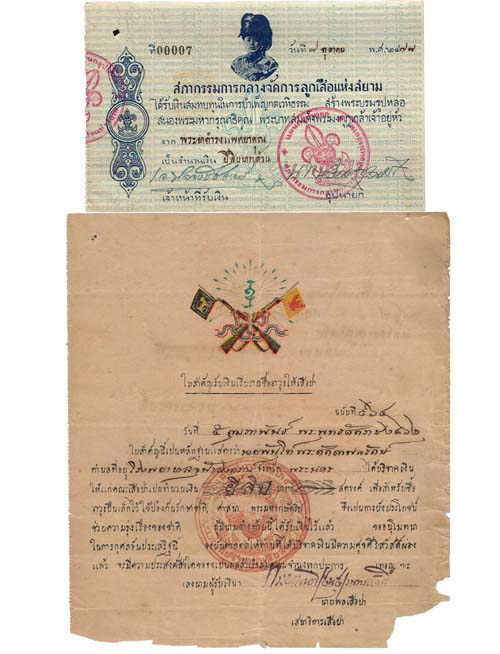 ที่ 00007 วันที่ ๗ ตุลาคม พ.ศ. ๒๔๗๗
สภากรรมการกลางจัดการลูกเสือแห่งสยาม
ได้รับเงินสมทบทุนในการบำเพ็ญกตเวทิธรรม สร้างพระบรมรูปหล่อ
สนองพระมหากรุณาธิคุณ พระบาทสมเด็จพระมงกุฎเกล้าเจ้าอยู่หัว
จาก พระยาดำรงแพทยาคุณ
เป็นจำนวนเงิน ยี่สิบบาทถ้วน
เจ้าหน้าที่รับเงิน อุปนายก
ใบสำคัญรับเงินเรี่ยรายซื้ออาวุธให้เสือป่า
ฉบับที่ ๕๖๔
วันที่ ๕ กุมภาพันธ์ พระพุทธศักราช
ใบสำคัญนี้เป็นหลักฐานแสดงว่า
ตำบลที่อยู่ จังหวัด พระนคร ได้บริจาคเงิน
ให้แก่คณะเสือป่าเป็นจำนวนเงิน ยี่สิบ บาท สตางค์ เพื่อสำหรับซื้อ
อาวุธปืนเล็กไว้ใช้ป้องกันรักษาชาติ ศาสนา พระมหากษัตริย์ ซึ่งเป็นการยังประโยชน์
ช่วยความรุ่งเรืองของชาติ ผู้มีนามข้างท้ายนี้ได้รับเงินไว้แล้ว ขออนุโมทนา
ในการกุศลอันประเสริฐนี้ ขออำนาจกุศลให้ท่านที่ได้บริจาคเงินมีความสุขสิริสวัสดิ์ผ่อง
แผ้ว จะมีความประสงค์สิ่งใดจงเป็นผลสำเร็จสมความจำนงทุกประการ เทอญ
ลงนามผู้รับเงิน
นายพลเสือป่า
เสนาธิการเสือป่า